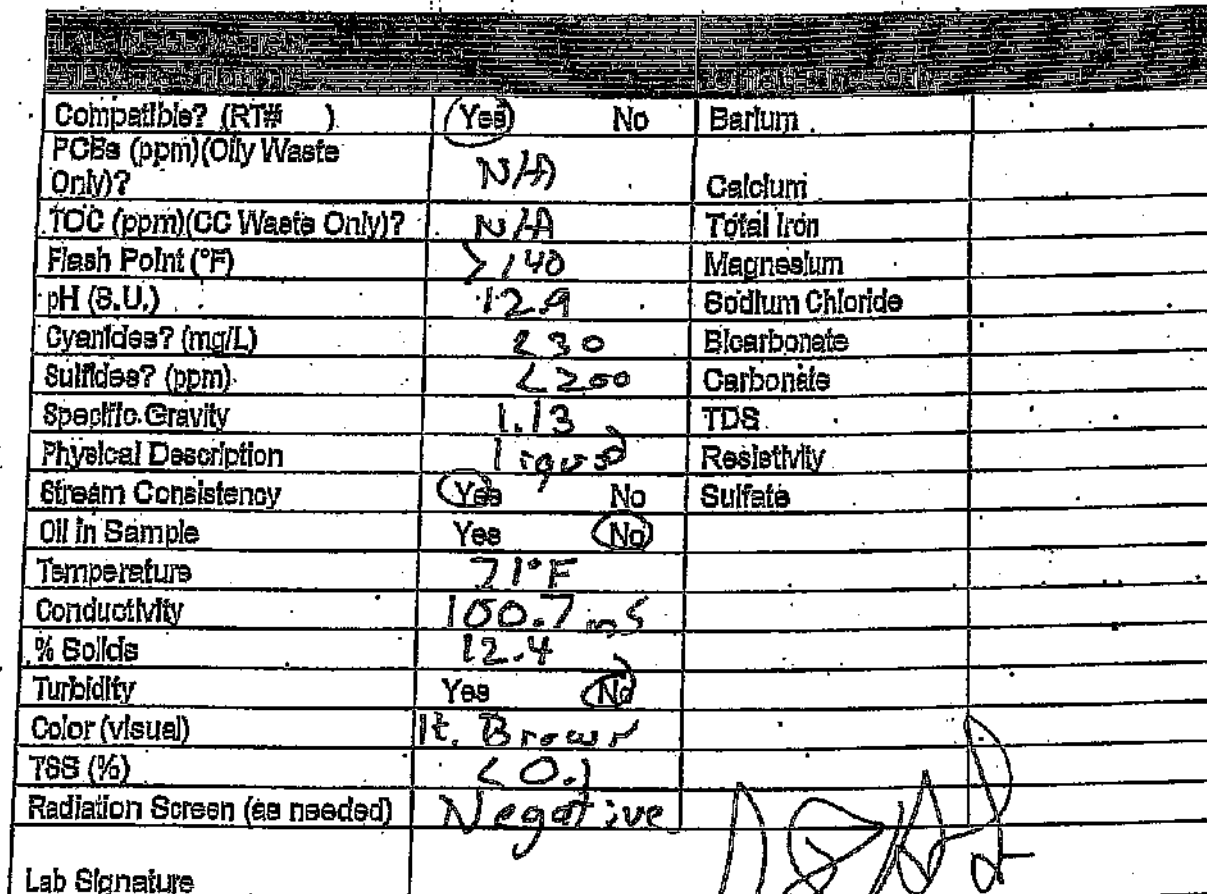 Compatible? (RT# ) Yes No Barium
PCBs (ppm)(Oily Waste
Only)? N/A Calcium
TOC (ppm)(CC Waste Only)? N/A Total Iron
Flash Point (°F) >140 Magnesium
pH (S.U.) 12.9 Sodium Chloride
Cyanides? (mg/L) <30 Bicarbonate
Sulfides? (ppm) <200 Carbonate
Specific Gravity 1.13 TDS
Physical Description liquid Resistivity
Stream Consistency Yes No Sulfate
Oil in Sample Yes No
Temperature 71°F
Conductivity 100.7 mS
% Solids 12.4
Turbidity Yes No
Color (visual) lt. Brown
TSS (%) <0.1
Radiation Screen (as needed) Negative
Lab Signature